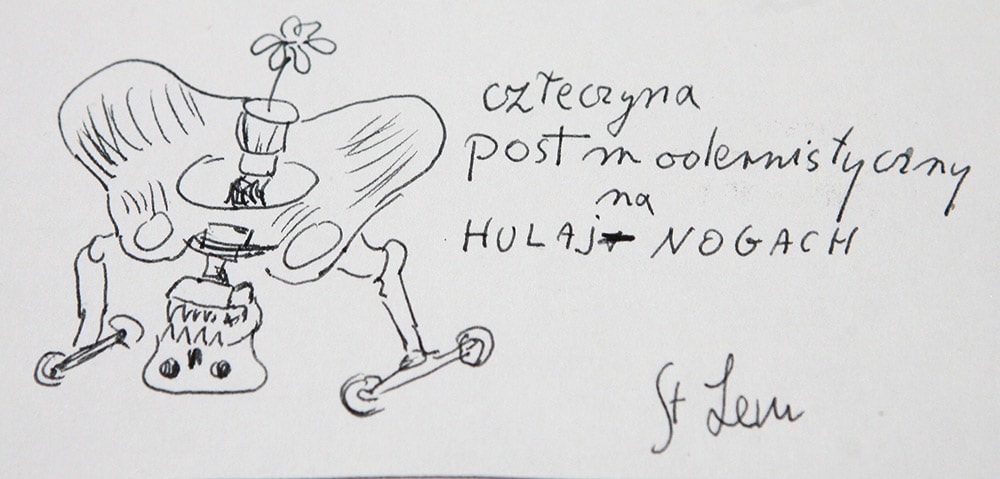 czteczyna
postmodernistyczny
na
HULAJ NOGACH
St Lem